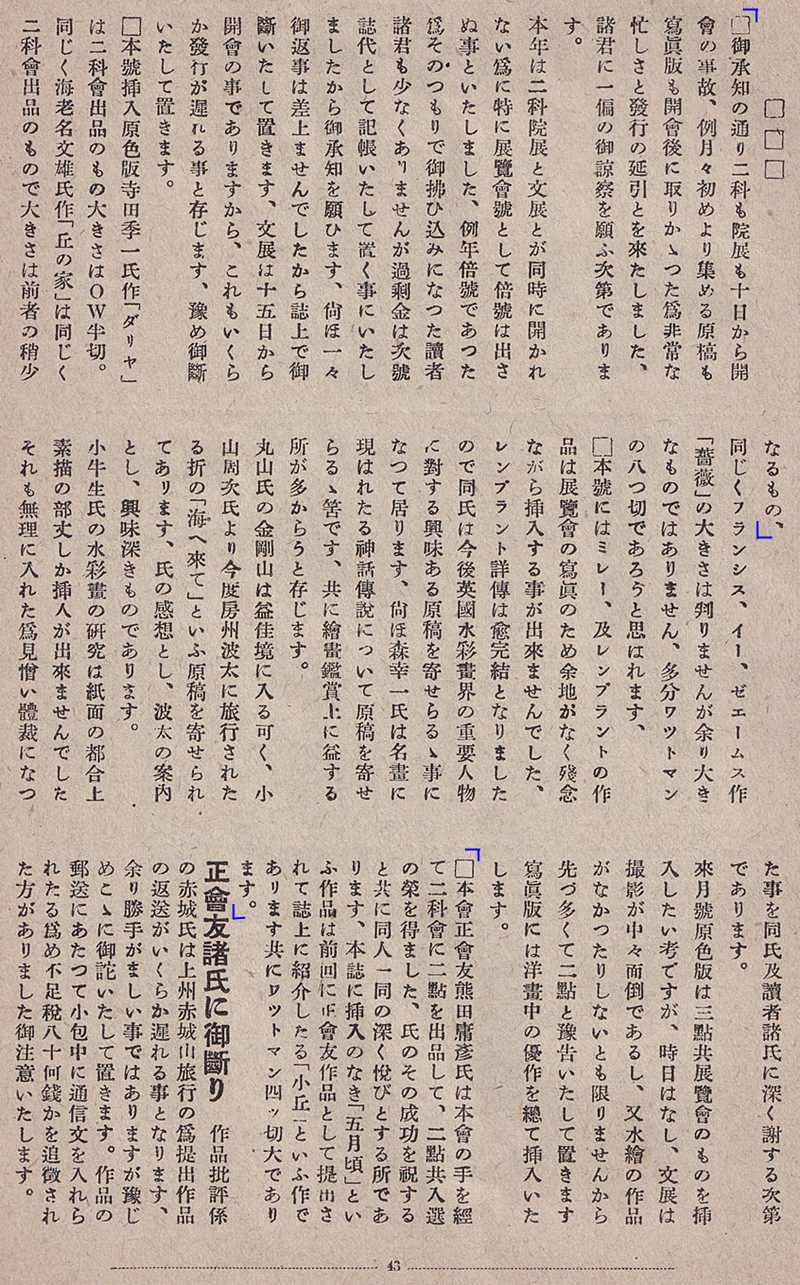 □□□
□御承知の通り二科も院展も十日から開
會の事故、例月々初めより集める原稿も
寫眞版も開會後に取りかゝつた爲非常な
忙しさと發行の延引とを來たしました、
諸君に一偏の御諒察を願ふ次第でありま
す。
本年は二科院展と文展とが同時に開かれ
ない爲に特に展覽會號として倍號は出さ
ぬ事といたしました、例年倍號であつた
爲そのつもりで御拂ひ込みになつた讀者
諸君も少なくありませんが過剰金は次號
誌代として記帳いたして置く事にいたし
ましたから御承知を願ひます、尙ほ一々
御返事は差上ませんでしたから誌上で御
斷いたして置きます、文展は十五日から
開會の事でありますから、これもいくら
か發行が遲れる事と存じます、豫め御斷
いたして置きます。
□本號挿入原色版寺田季一氏作「ダリヤ」
は二科會出品のもの大きさはOW半切。
同じく海老名文雄氏作「丘の家」は同じく
二科會出品のもので大きさは前者の稍少
なるもの、
同じくフランシス、イー、ゼエームス作
「薔薇」の大きさは判りませんが余り大き
なものではありません、多分ワツトマン
の八つ切であろうと思はれます、
□本號にはミレー、及レンブラントの作
品は展覽會の寫眞のため余地がなく殘念
ながら挿入する事が出來ませんでした、
レンブラント詳傳は愈完結となりました
ので同氏は今後英國水彩畫界の重要人物
に對する興味ある原稿を寄せらるゝ事に
なつて居ります、尙ほ森幸一氏は名畫に
現はれたる神話傳說について原稿を寄せ
らるゝ筈です、共に繪畫鑑賞上に益する
所が多からうと存じます。
丸山氏の金剛山は益佳境に入る可く、小
山周次氏より今度房州波太に旅行された
る折の「海へ來て」といふ原稿を寄せられ
てあります、氏の感想とし、波太の案内
とし、興味深きものであります。
小牛生氏の水彩畫の硏究は紙面の都合上
素描の部丈しか挿入が出來ませんでした
それも無理に入れた爲見憎い體裁になつ
た事を同氏及讀者諸氏に深く謝する次第
であります。
來月號原色版は三點共展覽會のものを挿
入したい考ですが、時日はなし、文展は
撮影が中々面倒であるし、又水繪の作品
がなかつたりしないとも限りませんから
先づ多くて二點と豫吿いたして置きます
寫眞版には洋畫中の優作を總て挿入いた
します。
□本會正會友熊田庸彥氏は本會の手を經
て二科會に二點を出品して、二點共入選
の榮を得ました、氏のその成功を祝する
と共に同人一同の深く悅びとする所であ
ります、本誌に挿入のなき「五月頃」とい
ふ作品は前回に正會友作品として提出さ
れて誌上に紹介したる「小丘」といふ作で
あります共にワットマン四ッ切大であり
ます。
正會友諸氏に御斷り　作品批評係
の赤城氏は上州赤城山旅行の爲提出作品
の返送がいくらか遲れる事となります、
余り勝手がましい事ではありますが豫じ
めこゝに御詫いたして置きます。作品の
郵送にあたつて小包中に通信文を入れら
れたる爲め不足稅八十何錢かを追徵され
た方がありました御注意いたします。
43